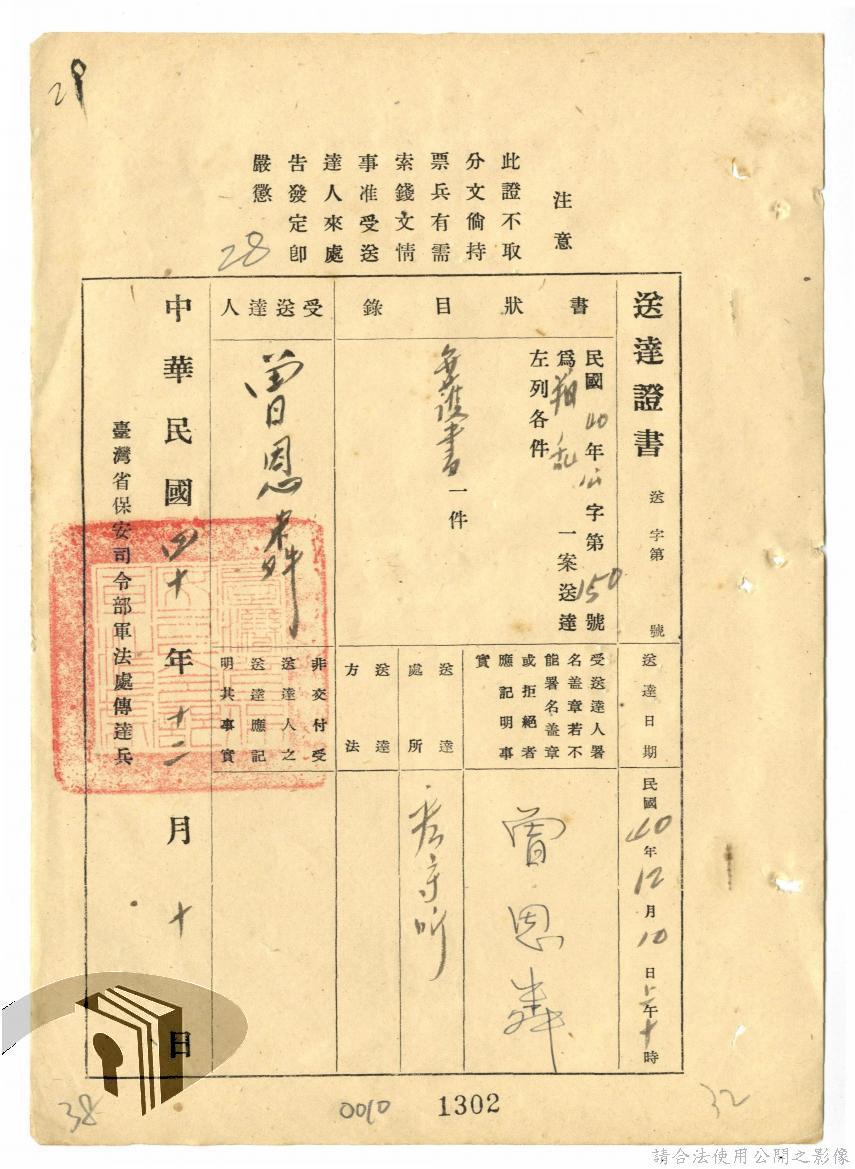 29
注意
此證不取
分文倘持
票兵有需
索錢文情
事准受送
達人來處
告發定卽
嚴懲
28
送達證書
送 字第 號
送達日期
民國40年12月10日上午十時
書狀目錄
民國40年 字第150號
爲叛亂一案送達
左列各件
書一件
受送達人署
名蓋章若不
能署名蓋章
或拒絕者
應記明事
實
曾恩
送達
處所
看守所
送達
方法
受送達人
曾恩
非交付受
送達人之
送達應記
明其事實
中華民國四十年十二月十日
臺灣省保安司令部軍法處傳達兵
38
0010
1302
32
請合法使用公開之影像